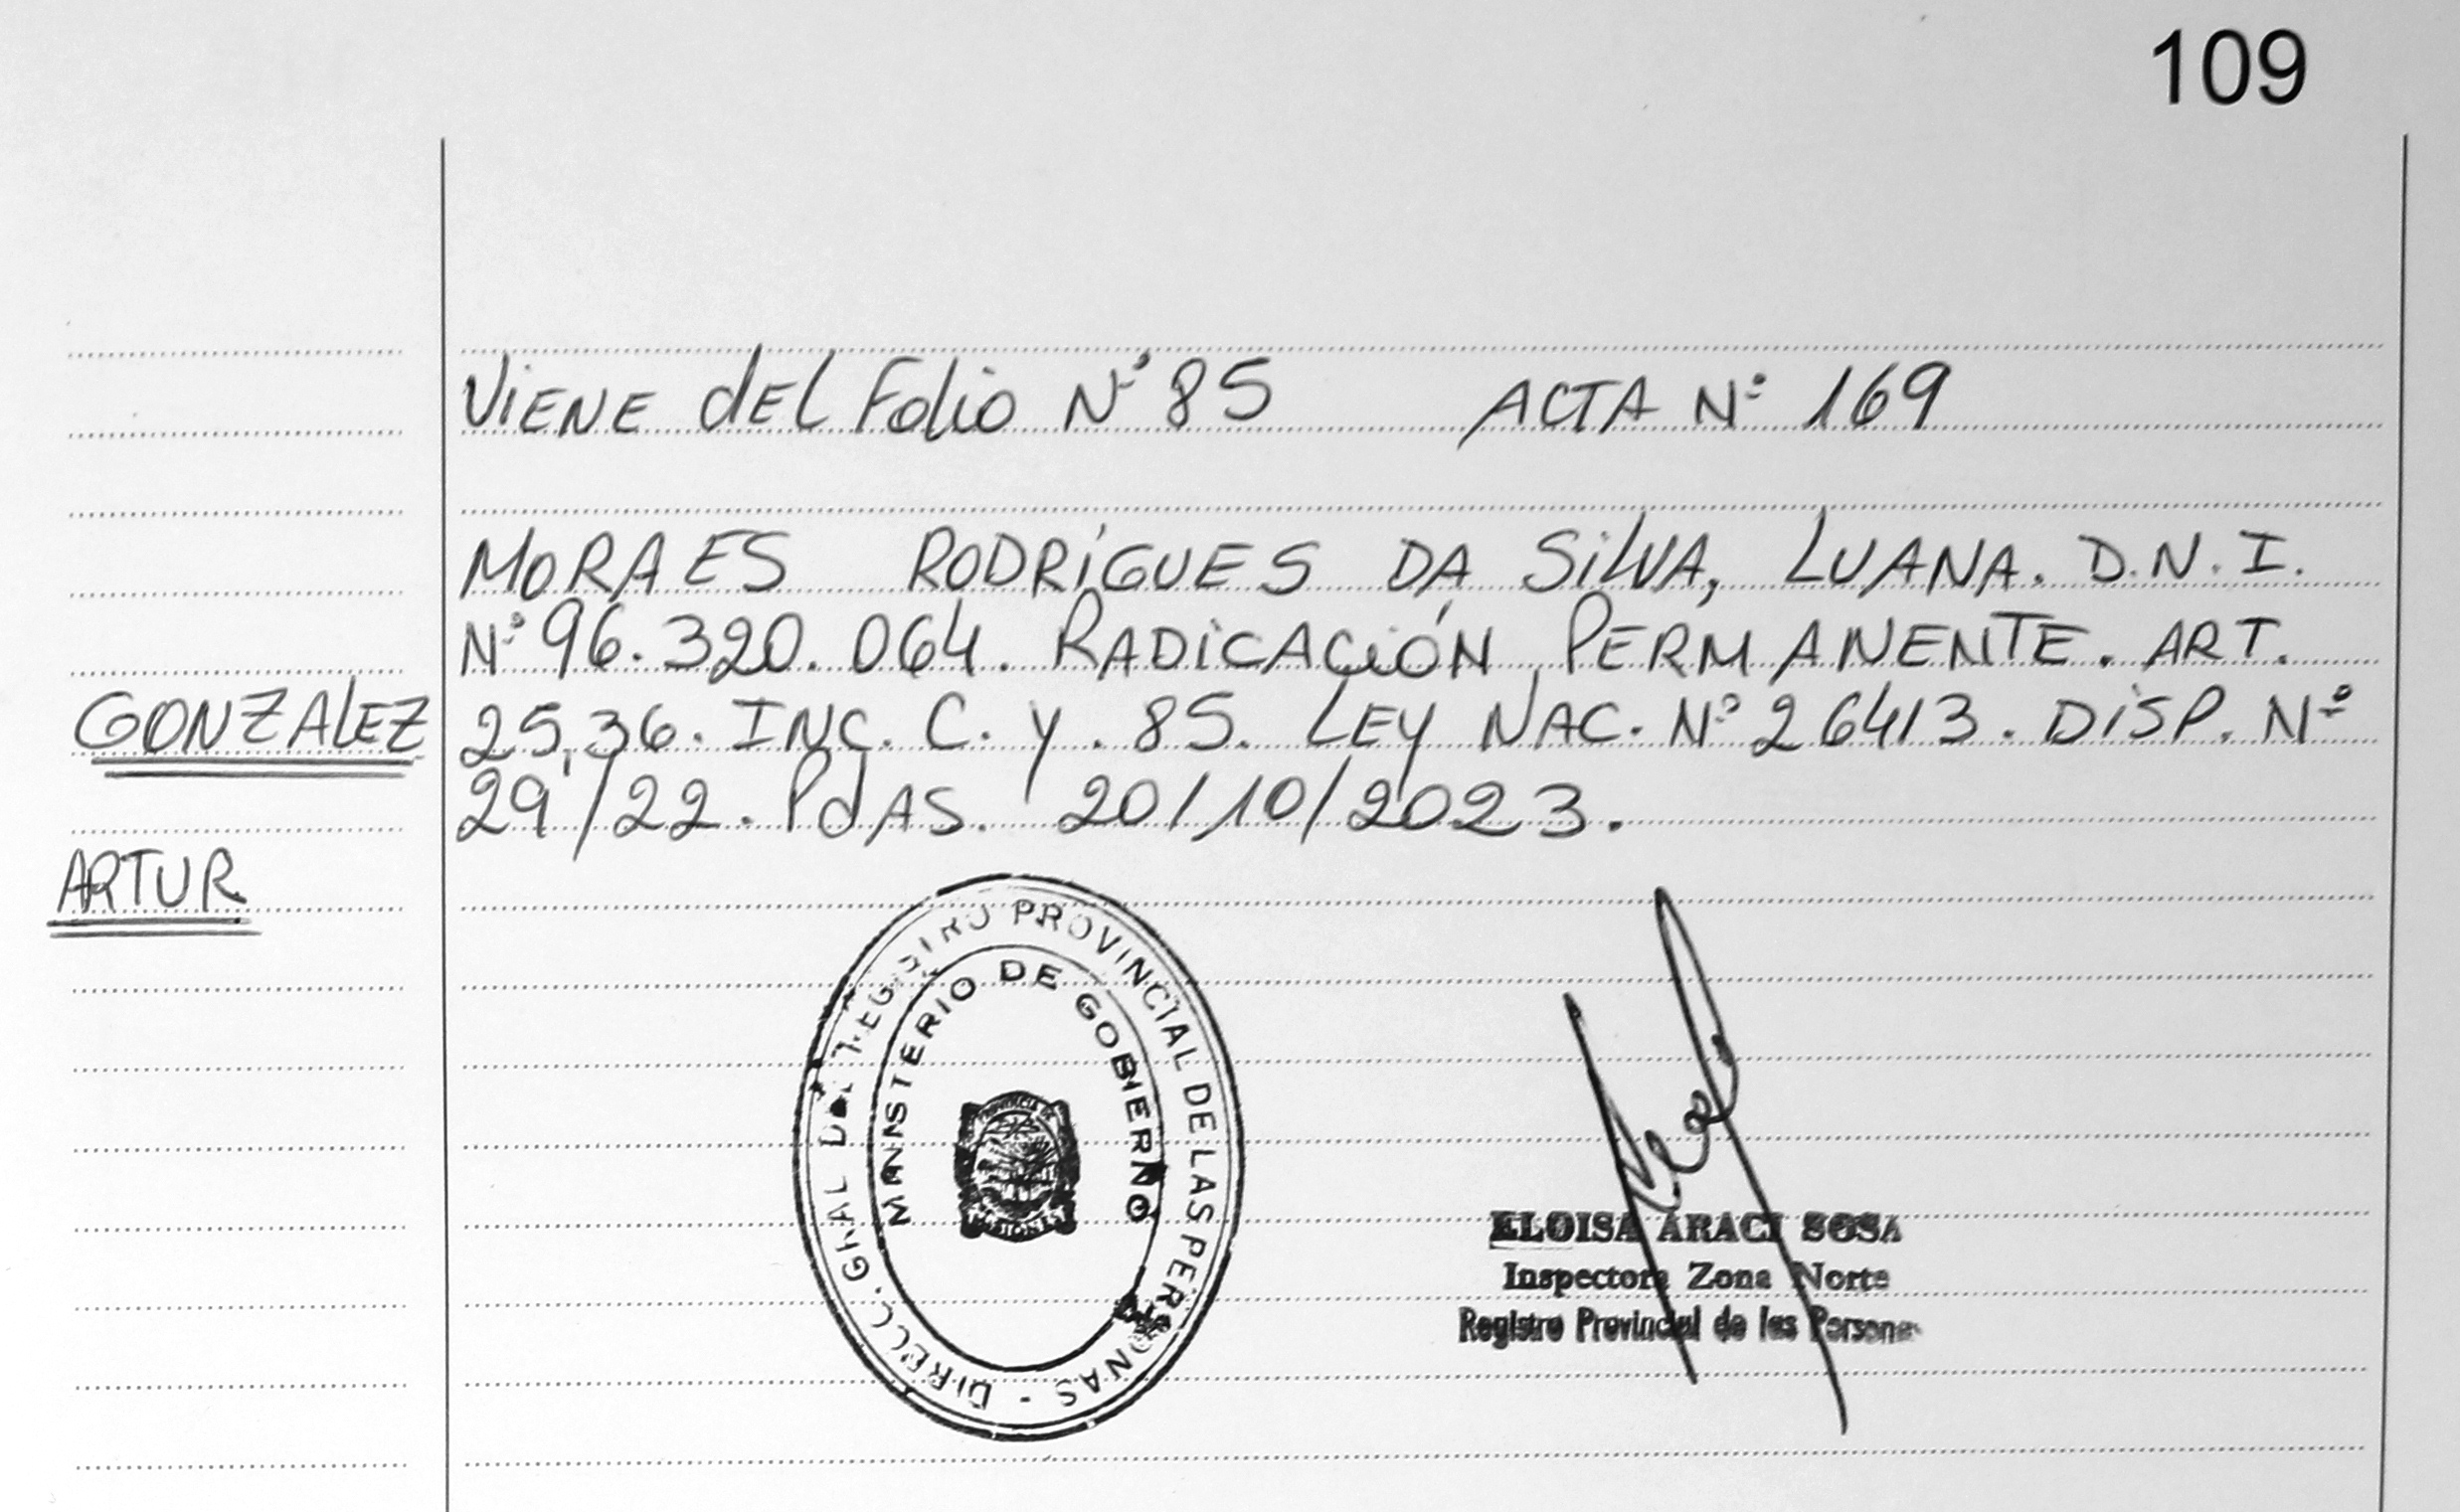 109
Viene del Folio Nº 85 ACTA Nº 169
MORAES RODRÍGUES DA SILVA, LUANA. D.N.I.
Nº 96.320.064. RADICACIÓN PERMANENTE. ART.
GONZALEZ 25,36. INC. C. Y. 85. LEY NAC. Nº 26413. DISP. Nº
29/22. PdAS. 20/10/2023.
ARTUR
DIRECC. GRAL DEL REGISTRO PROVINCIAL DE LAS PERSONAS -
MINISTERIO DE GOBIERNO
PROVINCIA DE
MISIONES
ELOISA ARACI SOSA
Inspectora Zona Norte
Registro Provincial de las Personas